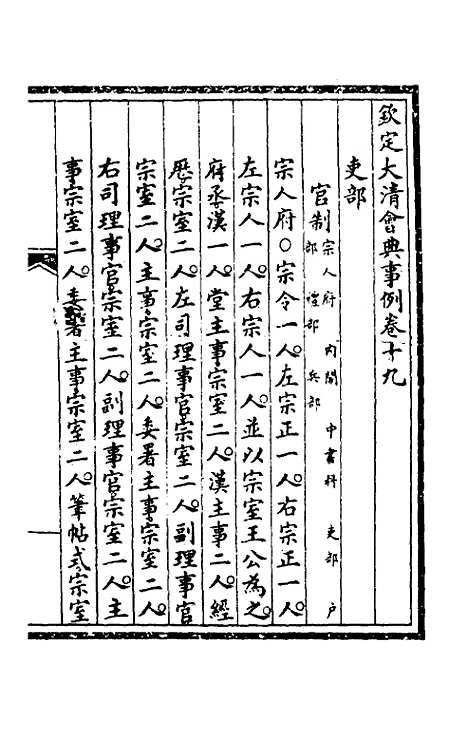 欽定大清會典事例卷十九
吏部
官制宗人府 内閣 中書科 吏部 户
部 禮部 兵部
宗人府○宗令一人左宗正一人右宗正一人
左宗人一人右宗人一人並以宗室王公為之
府丞漢一人堂主事宗室二人漢主事二人經
歷宗室二人左司理事官宗室二人副理事官
宗室二人主事宗室二人委署主事宗室二人
右司理事官宗室二人副理事官宗室二人主
事宗室二人委署主事宗室二人筆帖式宗室